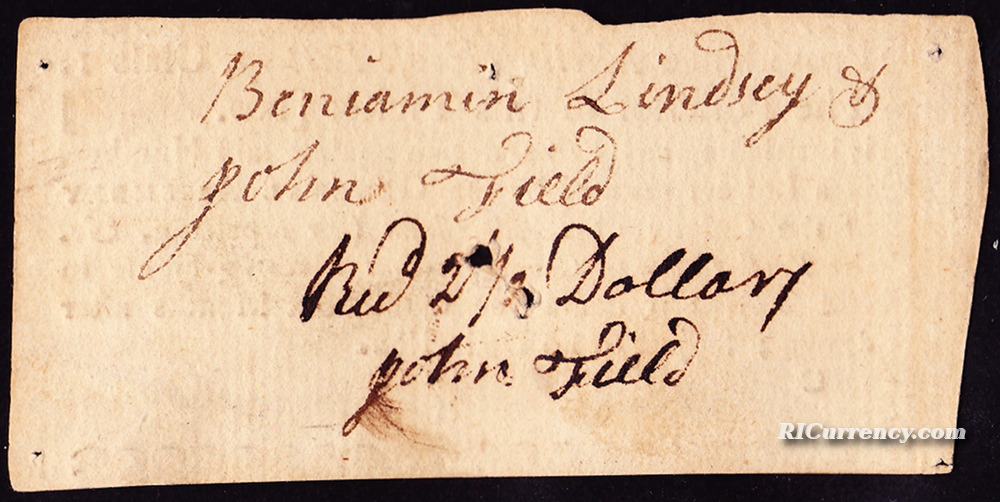 Beniamin Lindsey &
John Field
Recd 2 1/2 Dollars
John Field
RICurrency.com